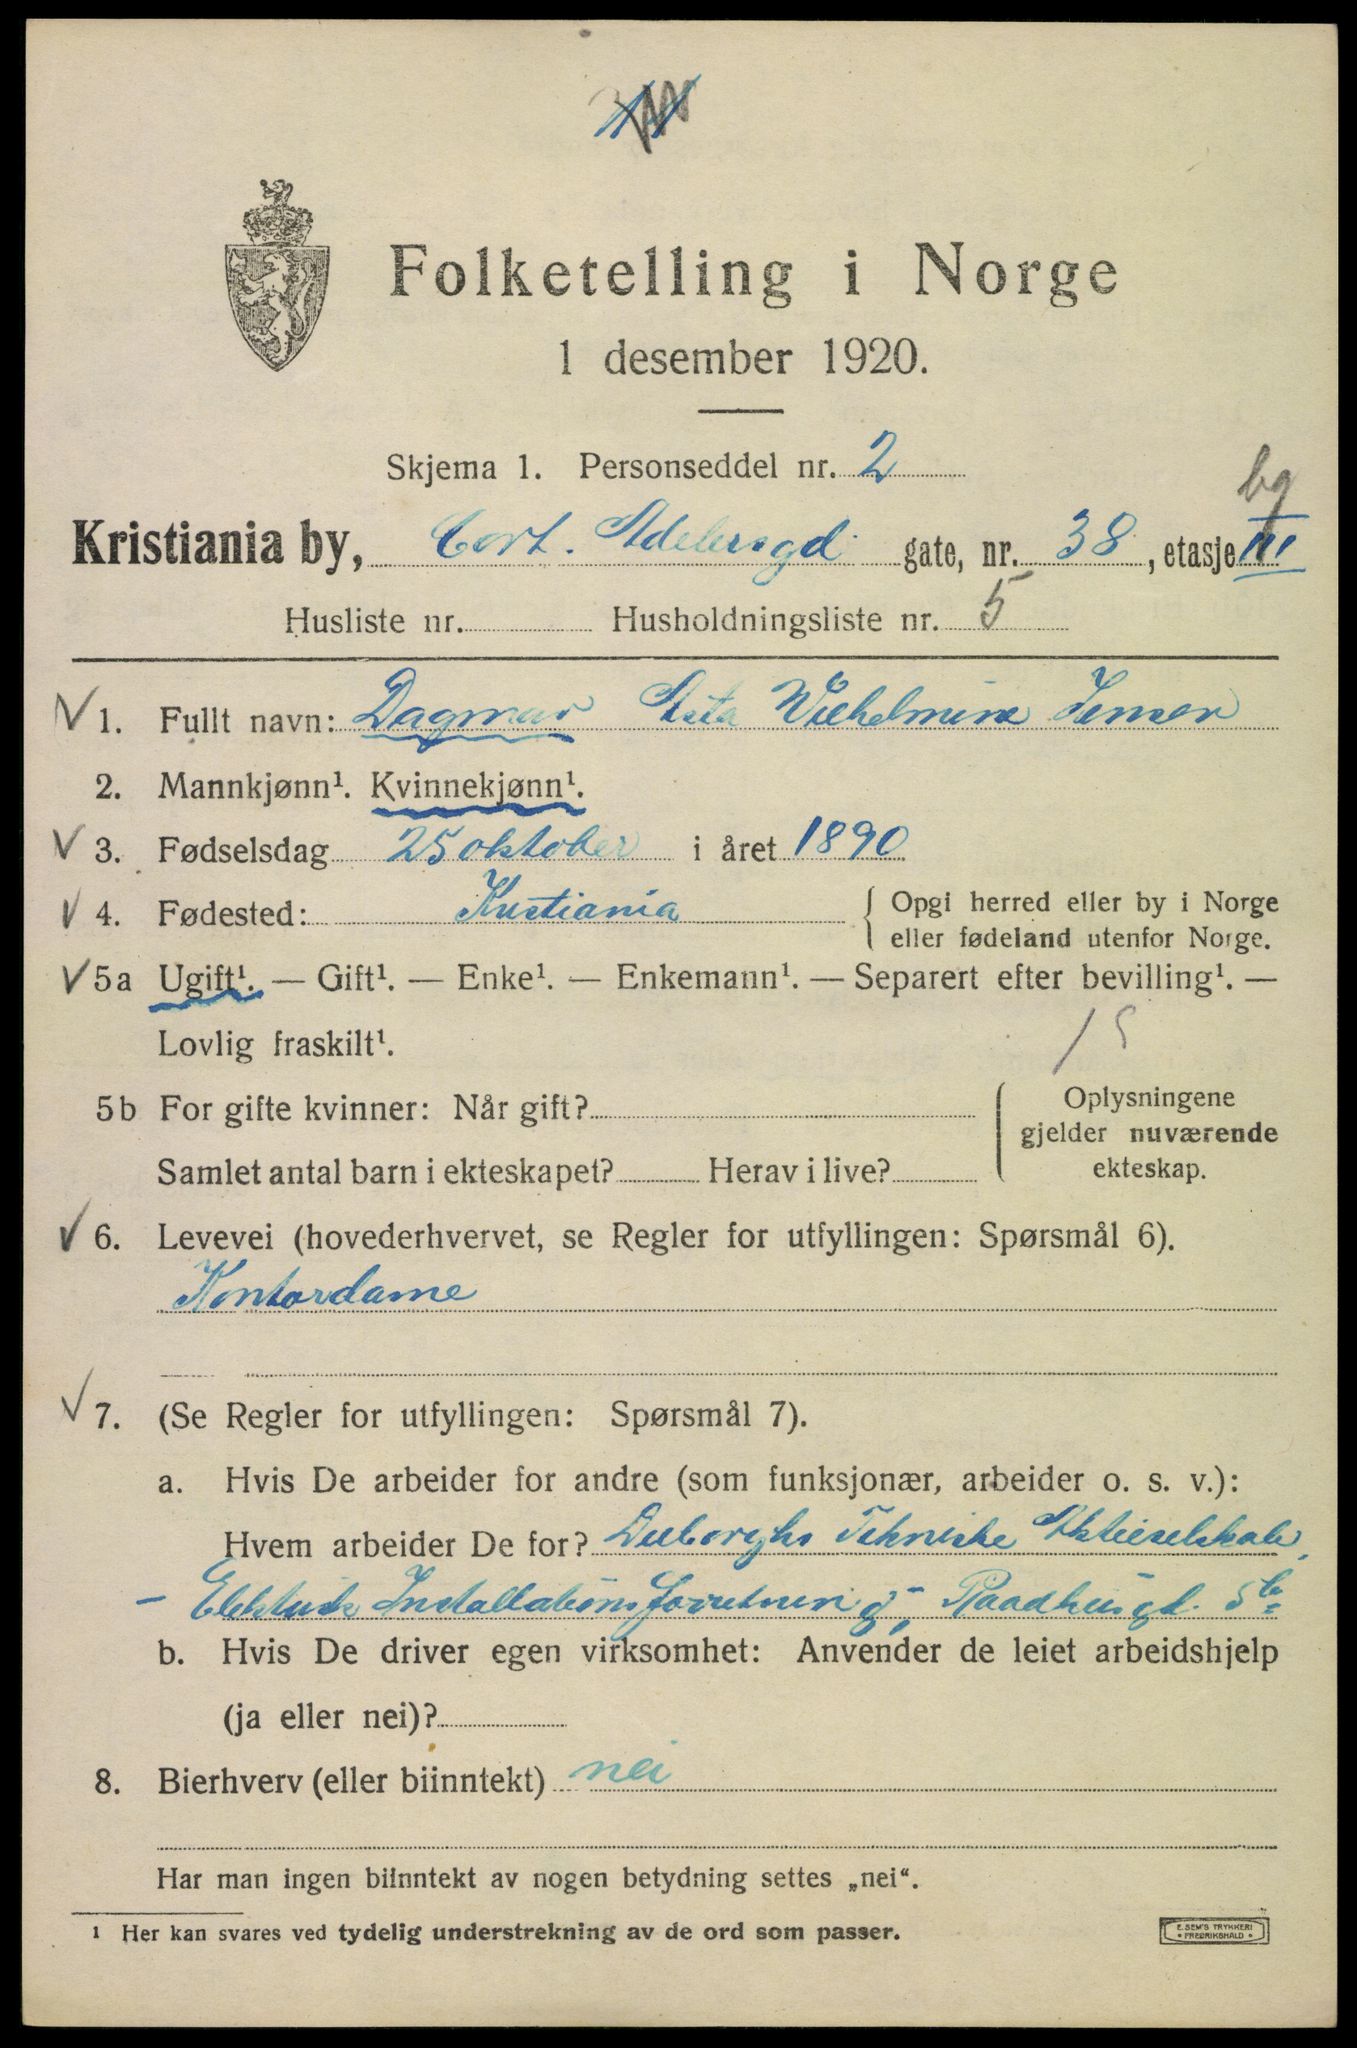 Folketelling i Norge
1 desember 1920.
Skjema 1. Personseddel nr. 2
bg
Kristiania by, Cort. Adelersgd gate, nr. 38, etasje III
Husliste nr. Husholdningsliste nr. 5
1. Fullt navn: Dagmar Asta Wilhelmine Jensen
2. Mannkjønn¹. Kvinnekjønn¹.
3. Fødselsdag 25 oktober i året 1890
4. Fødested: Kristiania { Opgi herred eller by i Norge
eller fødeland utenfor Norge.
5a Ugift¹. — Gift¹. — Enke¹. — Enkemann¹. — Separert efter bevilling¹. —
Lovlig fraskilt¹.
5b For gifte kvinner: Når gift? { Oplysningene
gjelder nuværende
Samlet antal barn i ekteskapet? Herav i live? ekteskap.
6. Levevei (hovederhvervet, se Regler for utfyllingen: Spørsmål 6).
Kontordame
7. (Se Regler for utfyllingen: Spørsmål 7).
a. Hvis De arbeider for andre (som funksjonær, arbeider o. s. v.):
Hvem arbeider De for? Tekniske Aktieselskab,
- Elektrisk Installationsforretning, Raadhusgt. 5b
b. Hvis De driver egen virksomhet: Anvender de leiet arbeidshjelp
(ja eller nei)?
8. Bierhverv (eller biinntekt) nei
Har man ingen biinntekt av nogen betydning settes „nei“.
1 Her kan svares ved tydelig understrekning av de ord som passer.
E. SEM'S TRYKKERI
FREDRIKSHALD